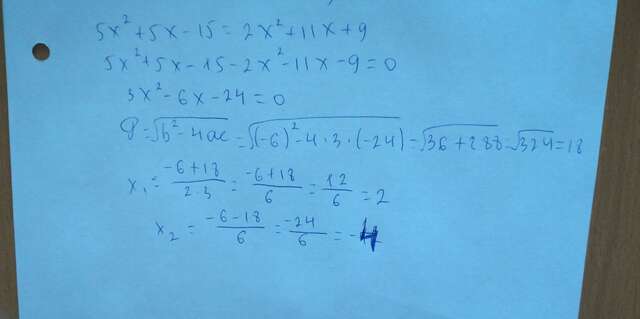 5x²+5x-15=2x²+11x+9
5x²+5x-15-2x²-11x-9=0
3x²-6x-24=0
D=√(b²-4ac)=√((-6)²-4·3·(-24))=√(36+288)=√324=18
x₁=(-6+18)/(2·3)=(-6+18)/6=12/6=2
x₂=(-6-18)/6=(-24)/6=-4